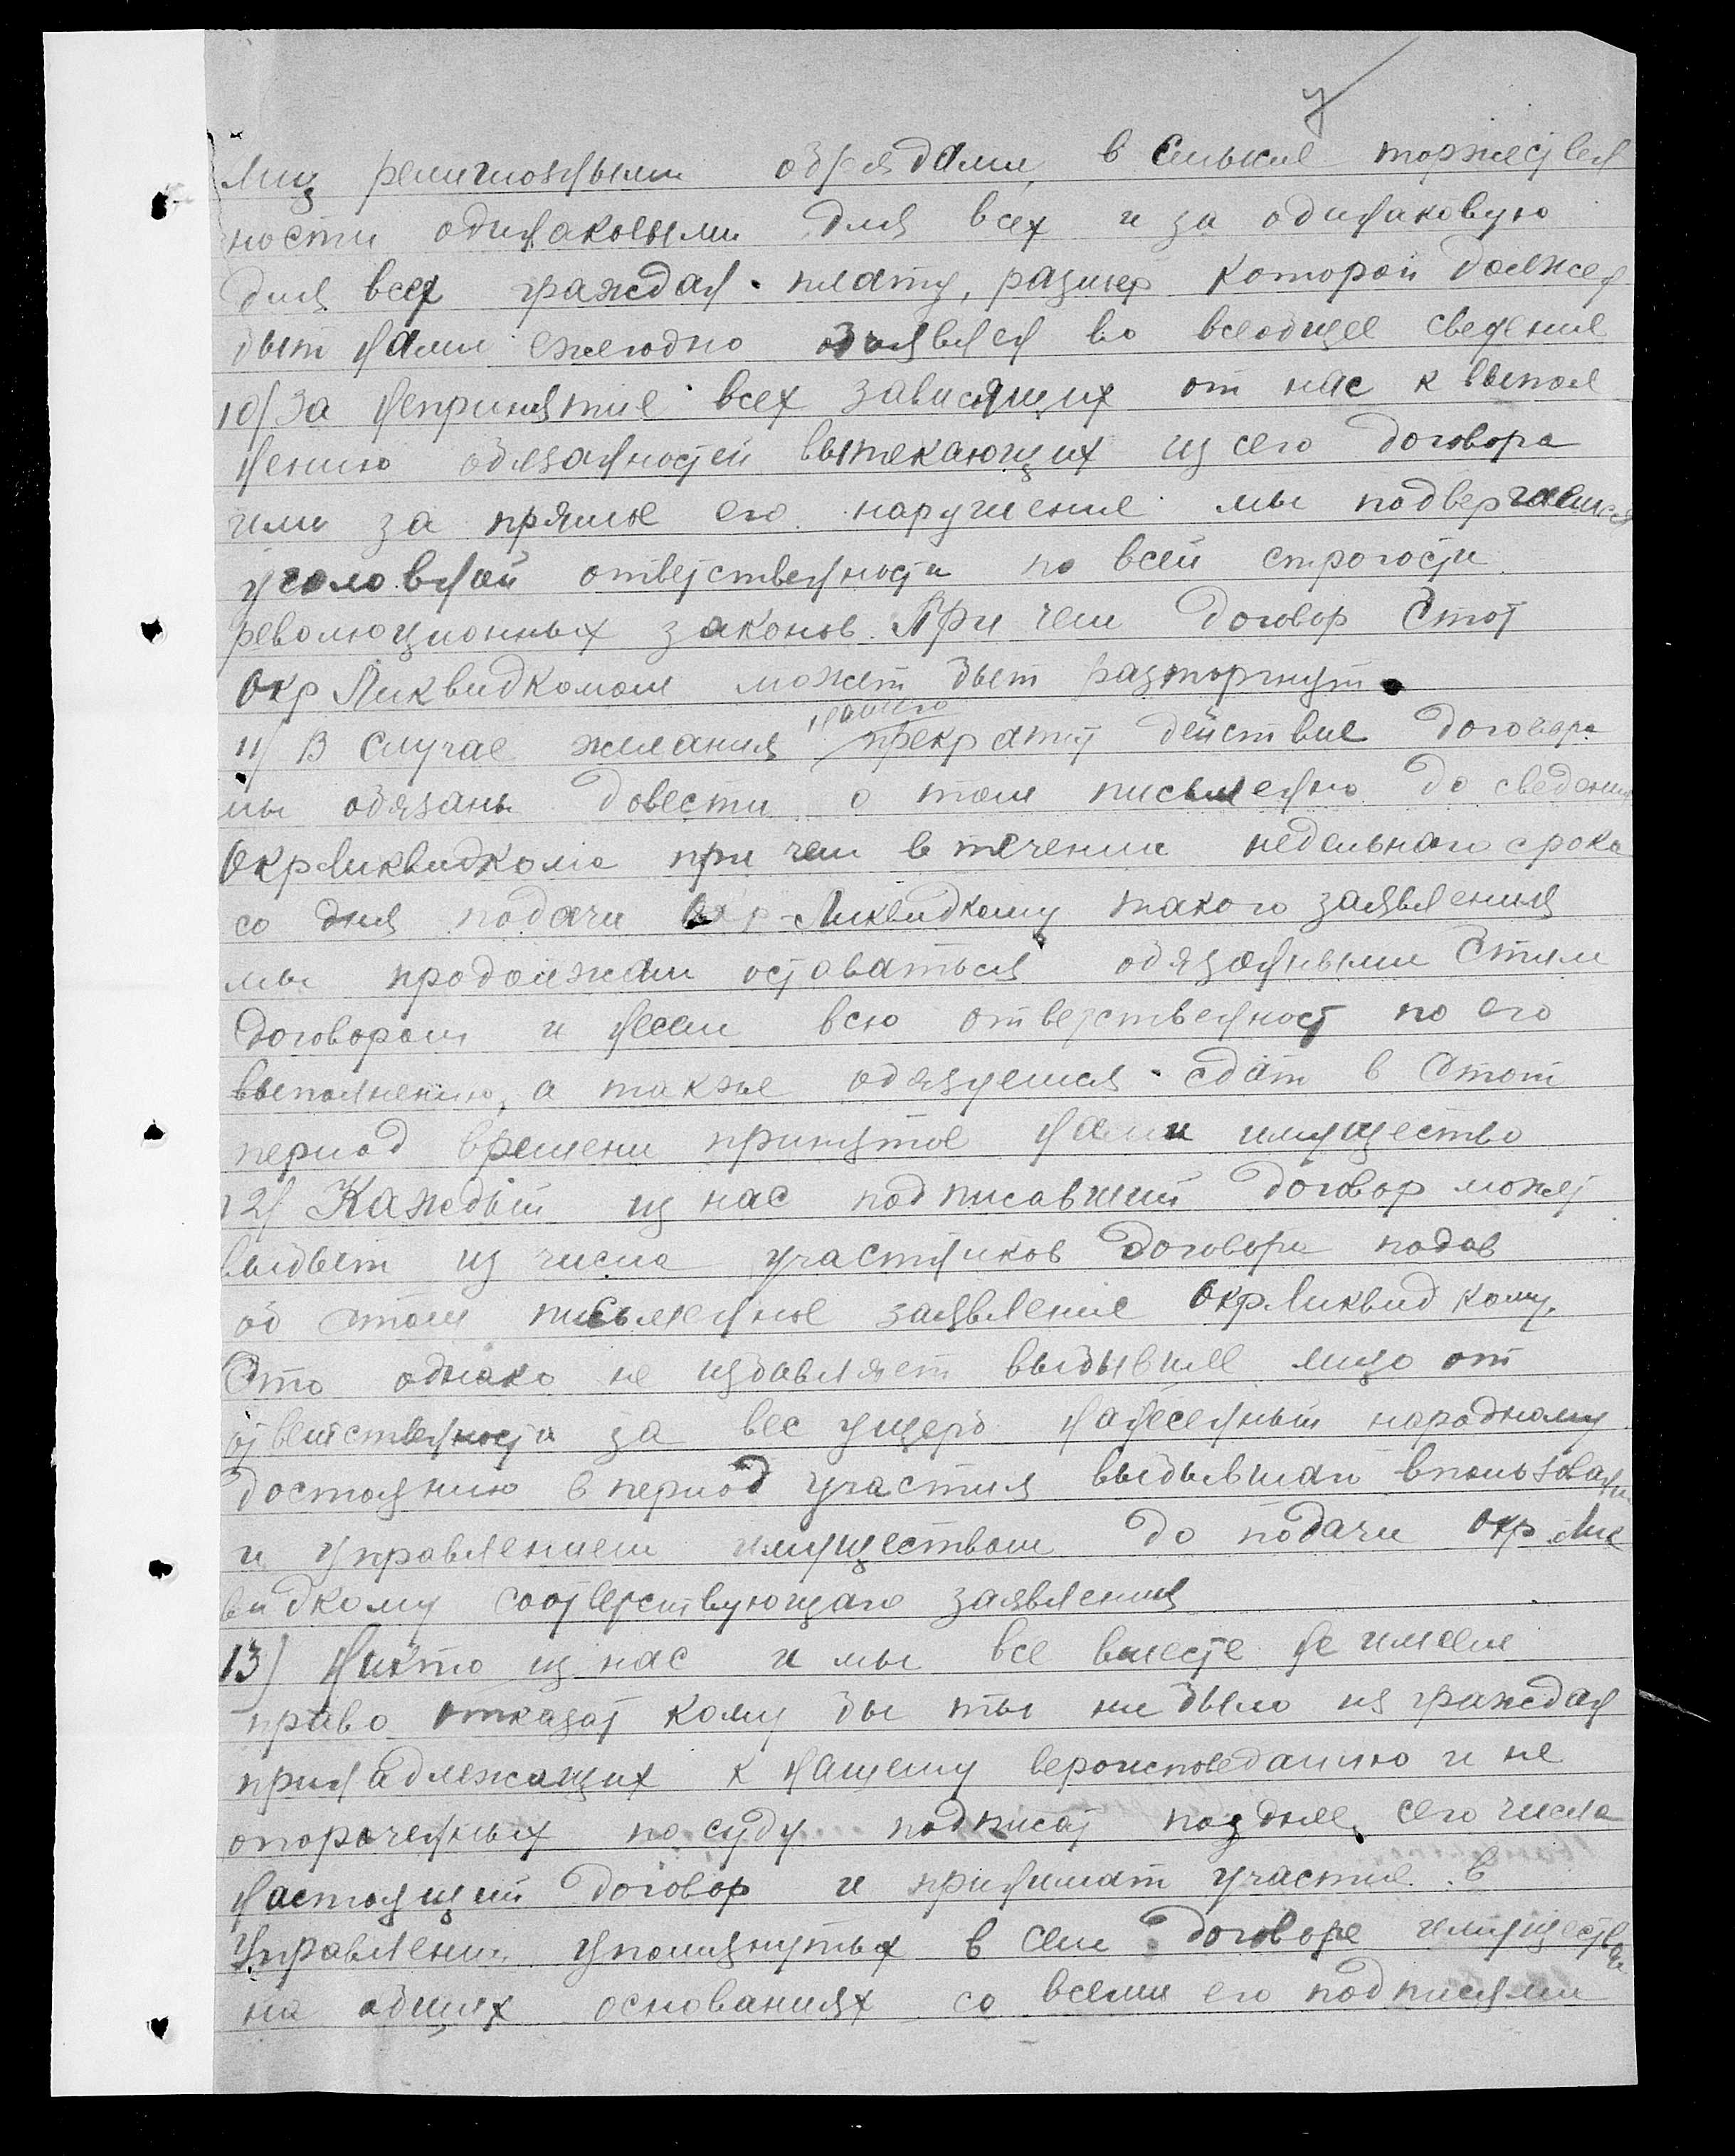 лиц религиозными обрядами, в смысле торжествен
ности одинаковыми для всех и за одинаковую
для всех граждан плату, размер которой должен
быт нами ежегодно объявлен во всеобщее сведение
10/ За непринятие всех зависящих от нас к выпол
нению обязанностей вытекающих из сего договора
или за прямое его нарушение мы подвергаемся
уголовной ответственности по всей строгости
революционных законов. При чем договор Этот
Окр Ликвидкомом может быт разторгнут.
нашего
11/ В Случае желания прекратит действие договора
мы обязаны довести о том письменно до сведения
ОкрЛиквидкома при чем в течении недельнаго срока
со дня подачи Окр-Ликвидкому такого заявления
мы продолжаем оставаться обязанными Этим
договором и несем всю ответственност по его
выполнению, а также обязуемся сдат в Этот
период времени принятое нами имущество
12/ Каждый из нас подписавший договор может
выбыт из числа участников договора подав
об этом письменное заявление ОкрЛиквид кому.
Это однако не избавляет выбывшее лицо от
ответственности за вес ущерб нанесенный народному
достоянию в период участия выбывшаго в пользовании
и управлением имуществом до подачи Окр Лик
видкому соответствующаго заявления
13) Никто из нас и мы все вместе не имеем
право отказат кому бы ты ни было из граждан
принадлежащих к нашему вероисповеданию и не
опороченных по суду подписат позднее сего числа
настоящий договор и принимат участие в
Управлении упомянутых в сем договоре имуществом
на общих основаниях со всеми его подписями